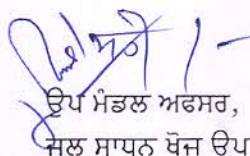 ਉਪ ਮੰਡਲ ਅਫਸਰ,
ਜਲ ਸਾਧਨ ਖੋਜ ਉਪ